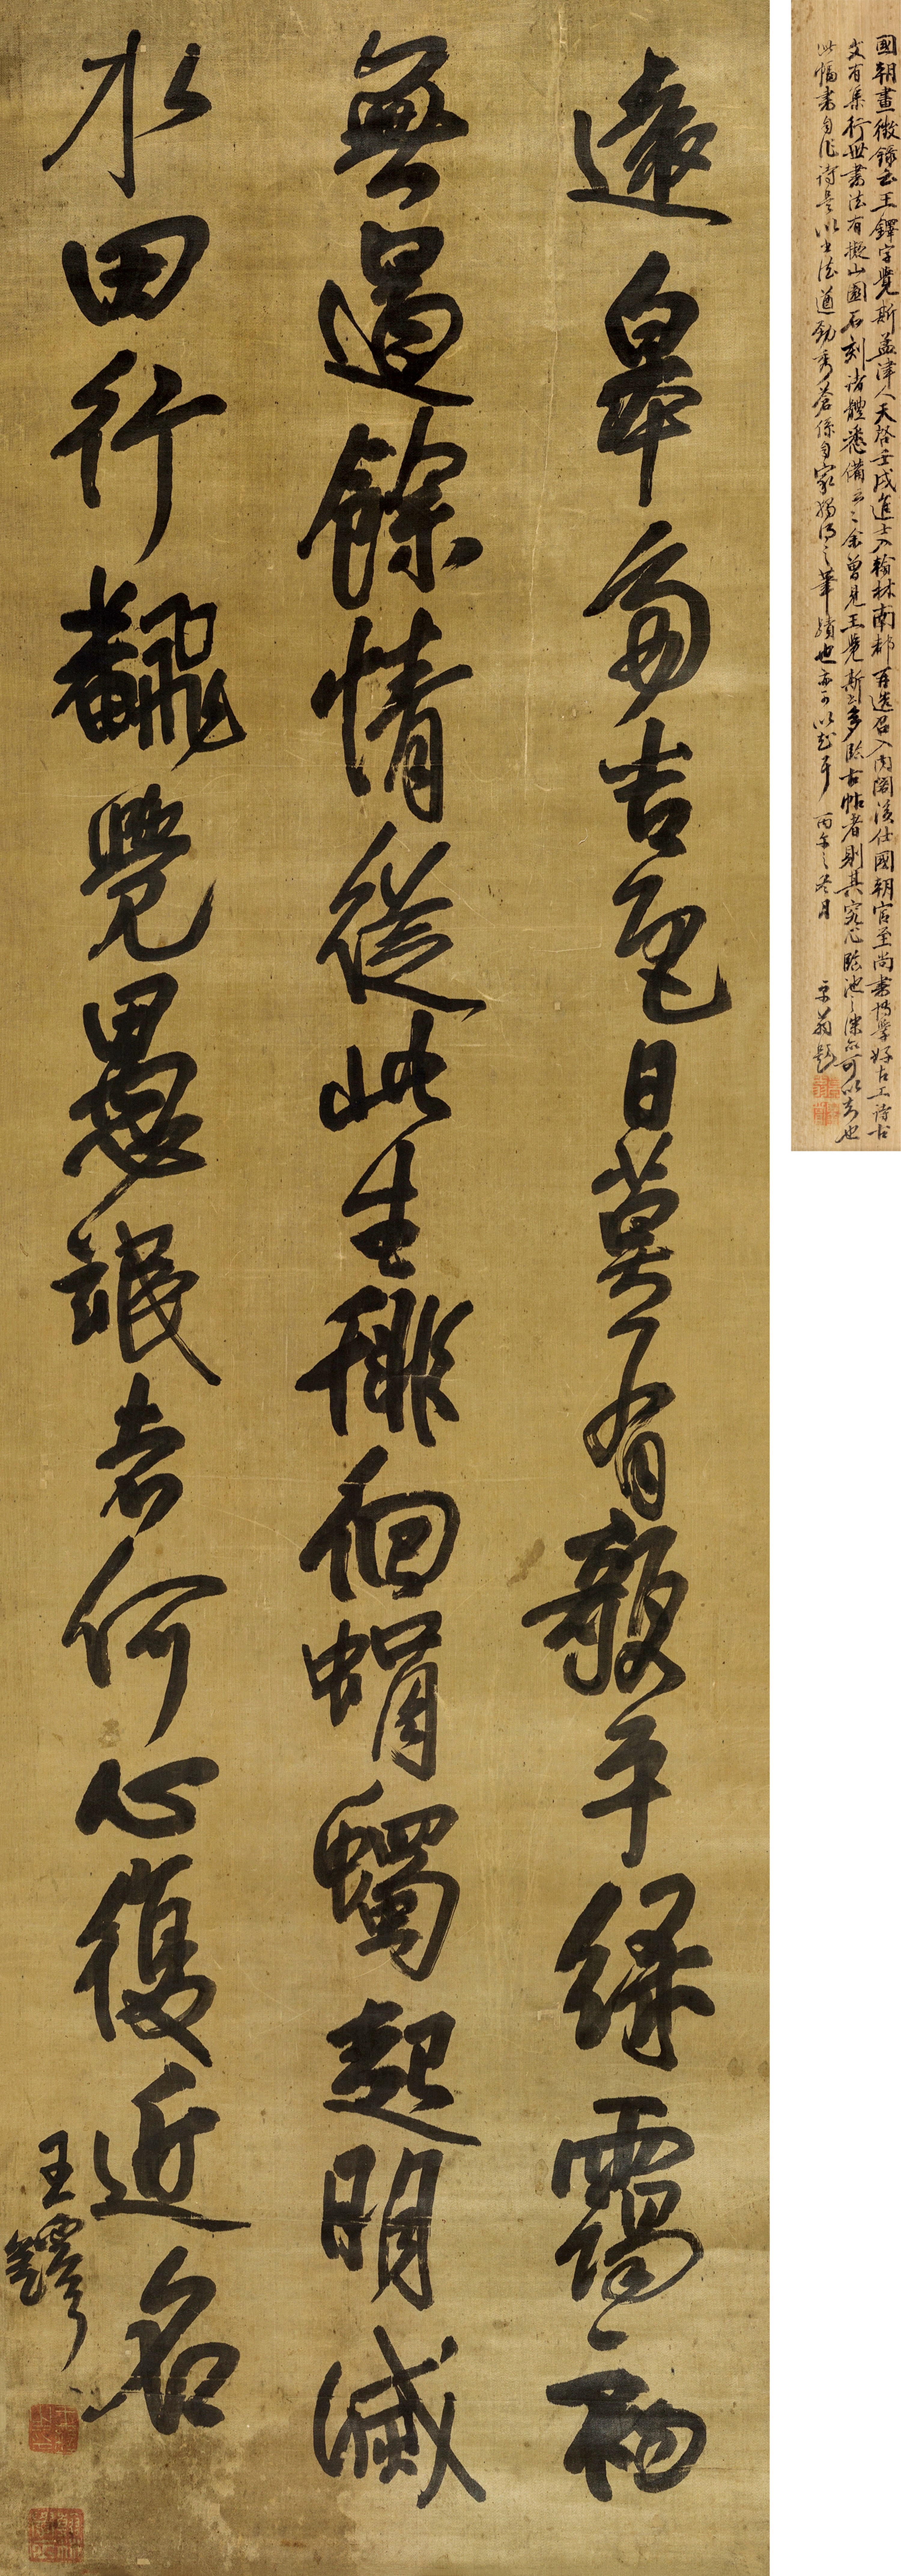 遠皋多吉色日莫有歌平緑靄初
無過餘情從此生徘徊蜎蠋起明滅
水田行飜覺愚氓者何心復近名
王鐸
國朝畫徵錄云王鐸字覺斯孟津人天啓壬戌進士入翰林南都再造召入內閣後仕國朝官至尚書博學好古工詩古
文有集行世書法有擬山園石刻諸體悉備云云余曾見王覺斯書多臨古帖者則其究心臨池之深亦可以知也
此幅書自作詩是以書法遒勁秀蒼係自家獨得之筆蹟也亦可以 丙午之冬月 翁題